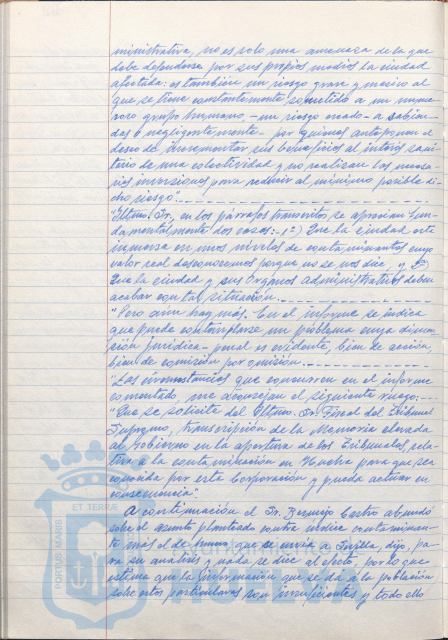 ministrativa, no es solo una amenaza de la que
debe defenderse por sus propios medios la ciudad
afectada: es también un riesgo grave y masivo al
que se tiene constantemente sometido a un nume
roso grupo humano, -un riesgo creado- a sabien-
das o negligentemente- por quienes anteponen el
deseo de incrementar sus beneficios al interés sani
tario de una colectividad y no realizan las necesa
rias inversiones para reducir al mínimo posible di
cho riesgo".
"Iltmo. Sr., en los párrafos transcritos se aprecian fun-
damentalmente dos cosas:-1º) Que la ciudad está
inmersa en unos niveles de contaminantes cuyo
valor real desconocemos porque no se nos dice y 2º)
Que la ciudad y sus Organos administrativos deben
acabar con tal situación.
"Pero aun hay más. En el informe se indica
que puede contemplarse un problema cuya dimen
sión jurídica- penal es evidente, bien de acción,
bien de comisión por omisión.
"Las circunstancias que concurren en el informe
comentado, me aconsejan el siguiente ruego:
"Que se solicite del Iltmo. Sr. Fiscal del Tribunal
Supremo, transcripción de la Memoria elevada
al Gobierno en la apertura de los Tribunales, rela-
tiva a la contaminación en Huelva para que sea
conocida por esta Corporación y pueda actuar en
consecuencia".
A continuación el Sr. Bermejo Castro abundó
sobre el asunto planteado contra índice contaminan-
te más el de humos que se envía a Sevilla, dijo, pa
ra su análisis y nada se dice al efecto, por lo que
estima que la información que se dá a la población
sobre estos particulares son insuficientes y todo ello
PORTUS MARIS
ET TERRÆ
CUSTODIA
Ayuntamiento
HUELVA